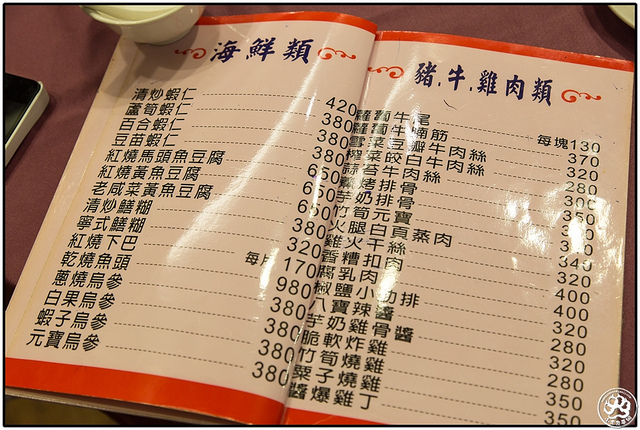 海鮮類
清炒蝦仁 420
蘆筍蝦仁 380
百合蝦仁 380
豆苗蝦仁 380
紅燒馬頭魚豆腐 650
紅燒黃魚豆腐 650
老咸菜黃魚豆腐
清炒鱔糊 380
寧式鱔糊 320
紅燒下巴 每片170
乾燒魚頭 980
蔥燒烏參 380
白果烏參 380
蝦子烏參 380
元寶烏參 380
豬.牛.雞肉類
牛尾 每塊130
牛腩筋 370
豆瓣牛肉絲 320
茭白牛肉絲
蒜苔牛肉絲 280
燒烤排骨
芋奶排骨 350
竹筍元寶
火腿白頁蒸肉
雞火干絲 340
香糟扣肉 320
腐乳肉 400
椒鹽小肋排 400
八寶辣醬 320
芋奶雞骨醬 280
脆軟炸雞 320
竹筍燒雞 280
栗子燒雞 350
醬爆雞丁 350